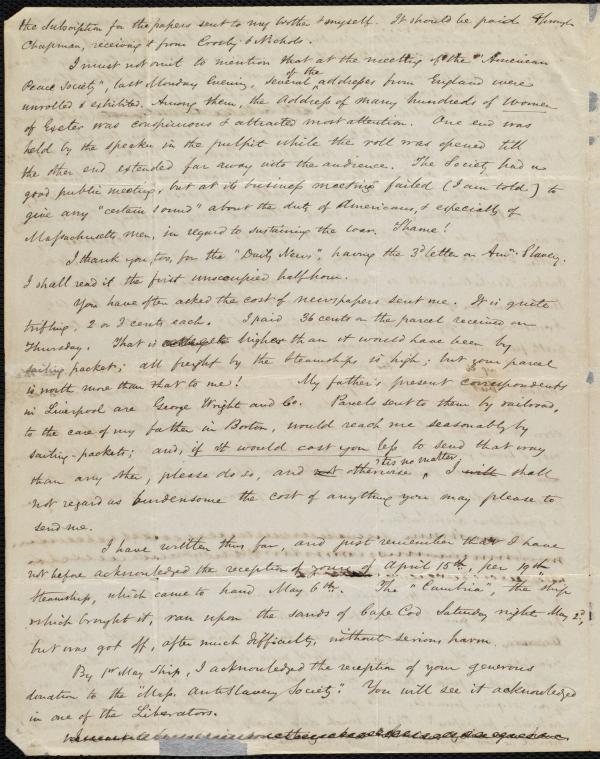 the subscription for the papers sent to my brother & myself. It should be paid through
Chapman, receiving it from Crosby & Nichols.
I must not omit to mention that at the meeting of the "American
Peace Society", last Monday Evening, several of the addresses from England were
unrolled & exhibited. Among them, the Address of many hundreds of Women
of Exeter was conspicuous & attracted most attention. One end was
held by the speaker in the pulpit while the roll was opened till
the other end extended far away into the audience. The Society had a
good public meeting, but at its business meeting failed (I am told) to
give any "certain sound" about the duty of Americans, & especially of
Massachusetts men, in regard to sustaining the war. Shame!
I thank you, too, for the "Daily News", having the 3d letter on Amn. Slavery.
I shall read it the first unoccupied half hour.
You have often asked the cost of newspapers sent me. It is quite
trifling, 2 or 3 cents each. I paid 36 cents on the parcel received on
Thursday. That is higher than it would have been by
sailing packet; all freight by the Steamships is high; but your parcel
is worth more than that to me! My father's present correspondents
in Liverpool are George Wright and Co. Parcels sent to them by railroad,
to the care of my father in Boston, would reach me seasonably by
sailing-packets; and, if it would cost you less to send that way
than any other, please do so, and if otherwise, 'tis no matter. I shall
not regard as burdensome the cost of anything you may please to
send me.
I have written thus far, and just remember that I have
not before acknowledged the reception of yours of April 15th, per 19th
Steamship, which came to hand May 6th. The "Cambria", the ship
which brought it, ran upon the sands of Cape Cod Saturday night May 2d,
but was got off, after much difficulty, without serious harm.
By 1st May Ship, I acknowledged the reception of your generous
donation to the "Mass. AntiSlavery Society". You will see it acknowledged
in one of the Liberators.